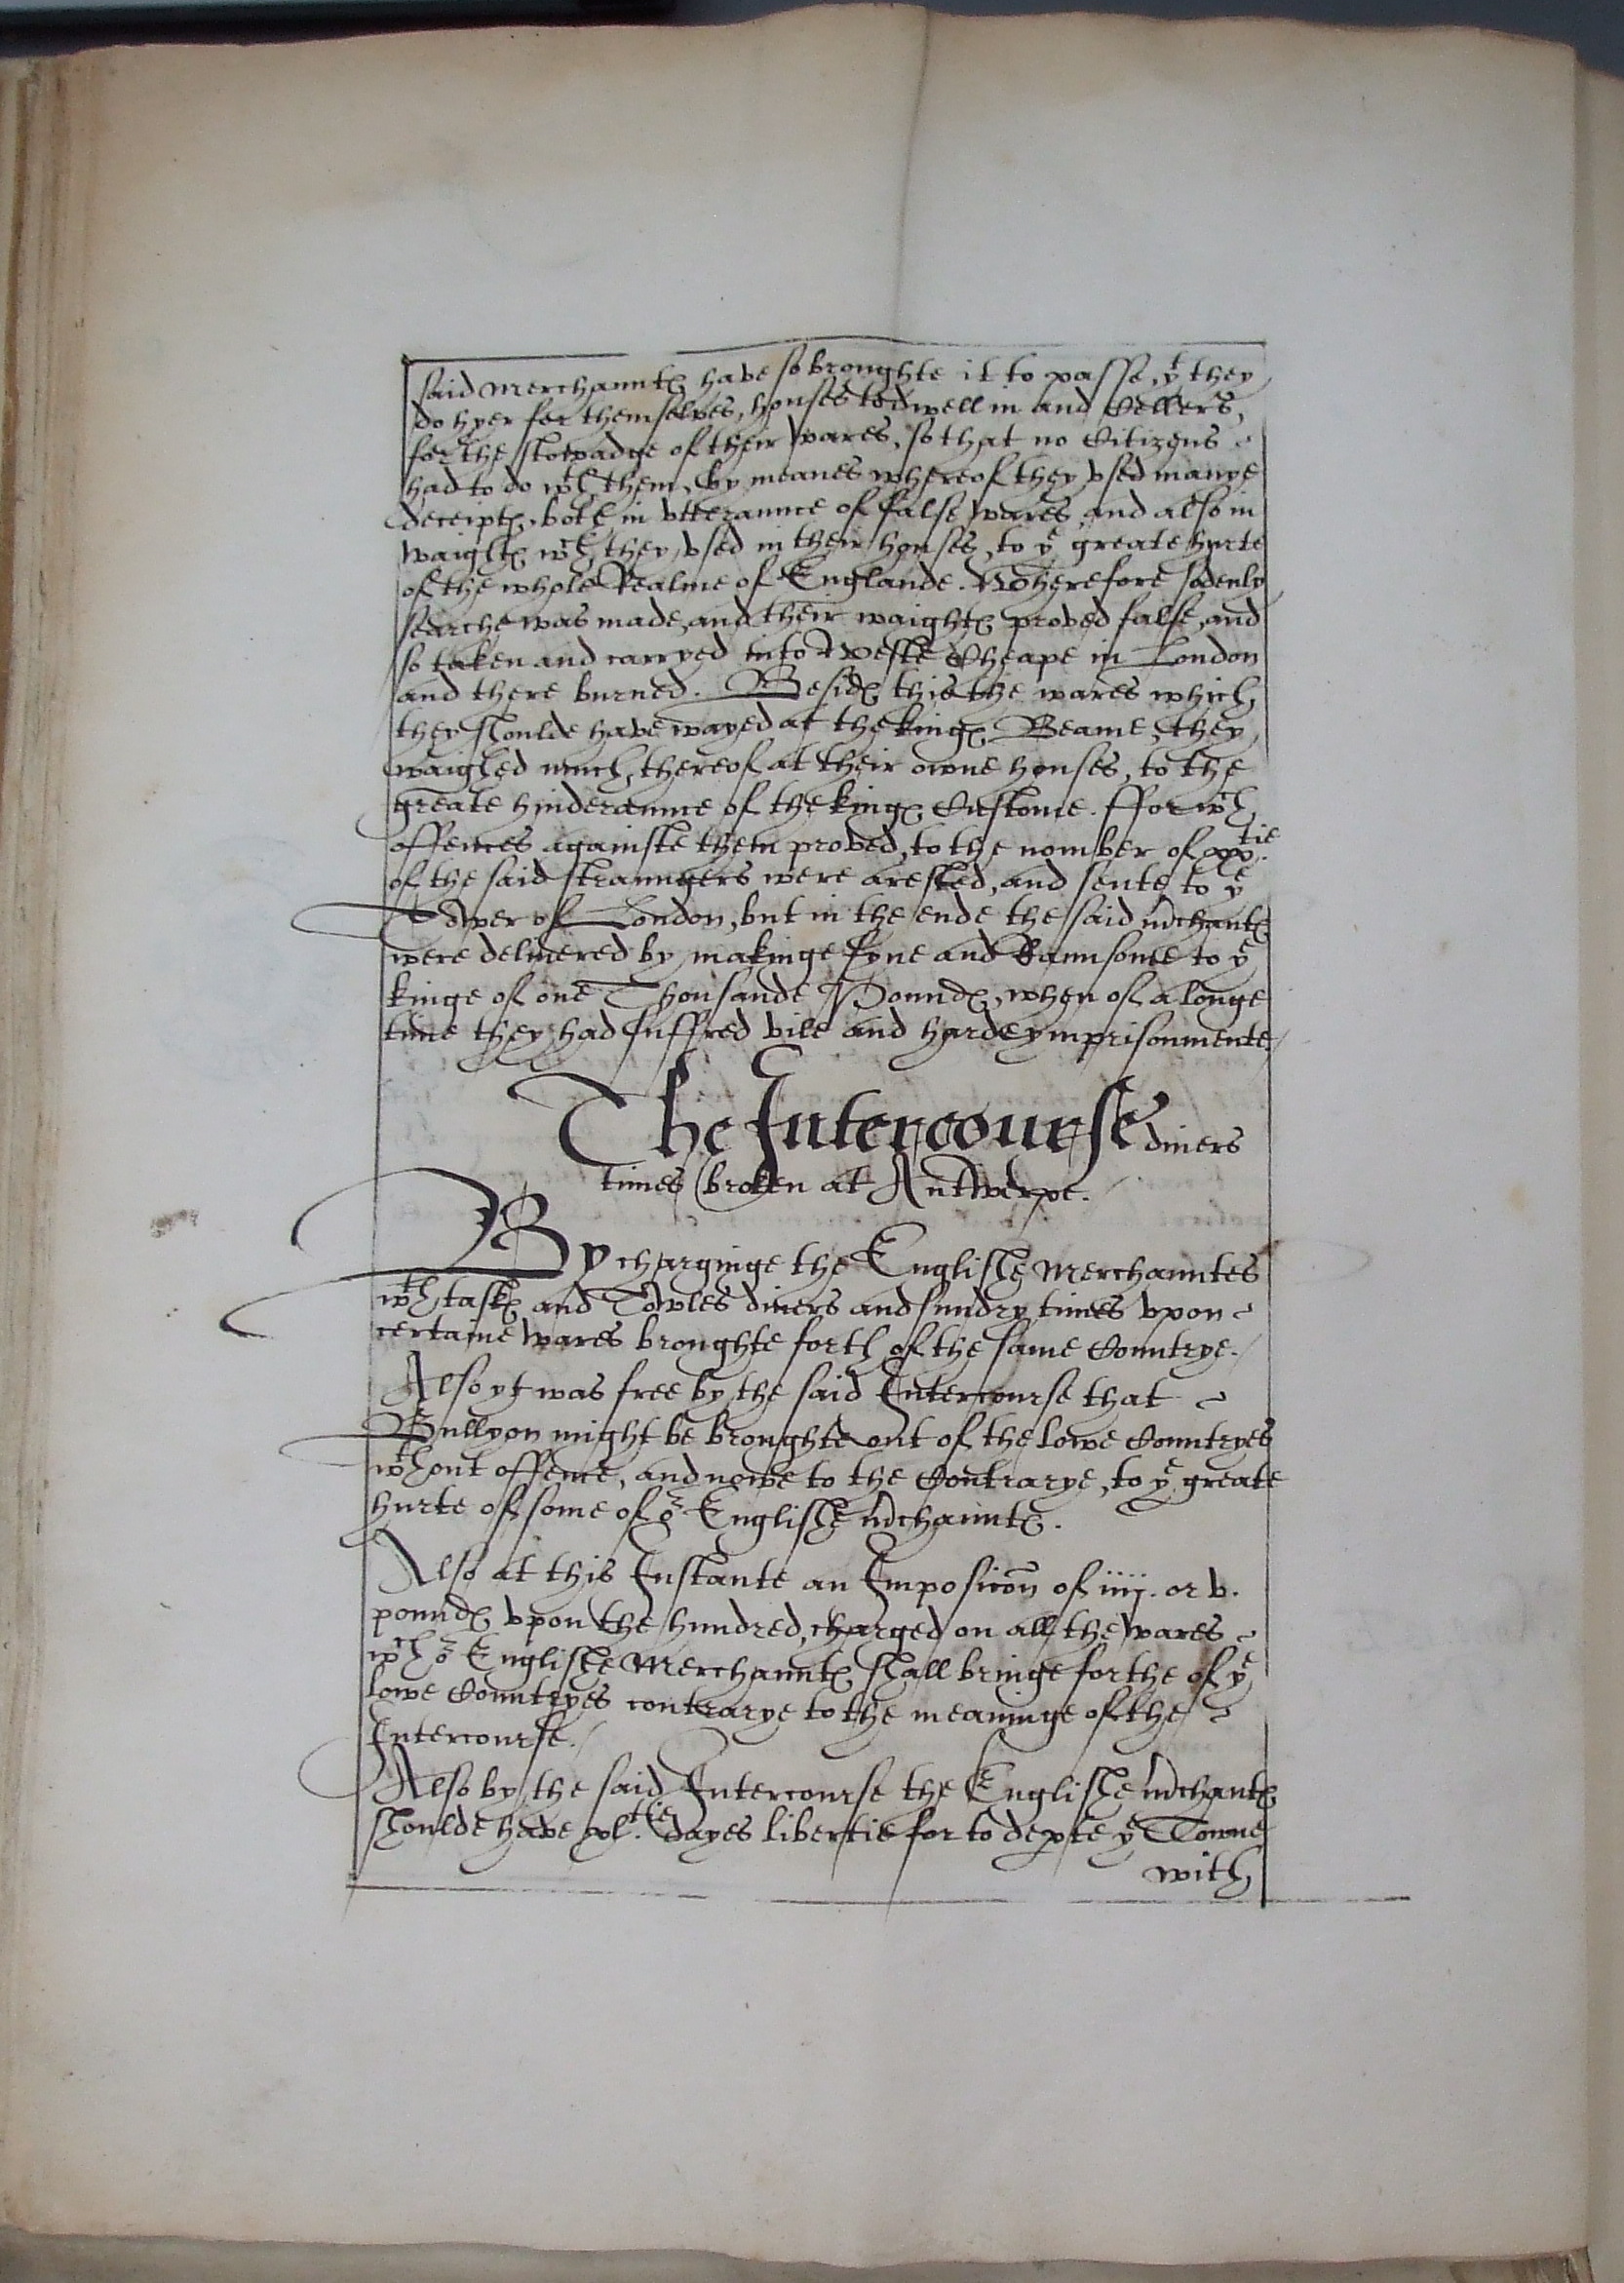 said merchauntꝭ have so broughte it to passe, yt they
do hyer for themselves, houses to dwell in and Sellers,
for the stowadge of their wares, so that no Citizens
had to do wth them, by meanes whereof they vsed manye
deceiptꝭ, both in vtteraunce of false wares, and also in
waightꝭ wch they vsed in their houses, to ye greate hurte
of the whole Realme of Englande. Wherefore sodenly
searche was made, and their waightꝭ proved false, and
so taken and carryed into Weste Cheape in London
and there burned. Besidꝭ this the wares which
they shoulde have wayed at the kingꝭ Beame, they
waighed much thereof at their owne houses, to the
greate hinderaunce of the kingꝭ Custome. ffor wch
offences againste them proved, to the nomber of xxtie.
of the said straungers were arested, and sente to ye
Tower of London, but in the ende the said mchantꝭ
were delivered by makinge fyne and Raunsome to ye
kinge of one Thousande Poundꝭ, when of a longe
time they had suffred vile and harde ymprisonmente.
The Intercourse divers
times broken at Antwerpe.
By charginge the Englishe Merchauntes
wth taskꝭ and Towles divers and sundry times vpon
certaine wares broughte forth of the same Countrye.
Also yt was free by the said Intercourse that
Bullyon might be broughte out of the lowe Countryes
wthout offence, and nowe to the Contrarye, to ye greate
hurte of some of or Englishe mchauntꝭ.
Also at this Instante an Imposicōn of iiij. or v.
poundꝭ vpon the hundred, charged on all the wares
wch or Englishe Merchauntꝭ shall bringe forthe of ye
lowe Countryes contrarye to the meaninge of the
Intercourse.
Also by the said Intercourse the Englishe mchantꝭ
shoulde have xl.tie dayes libertie for to depte ye Towne
with